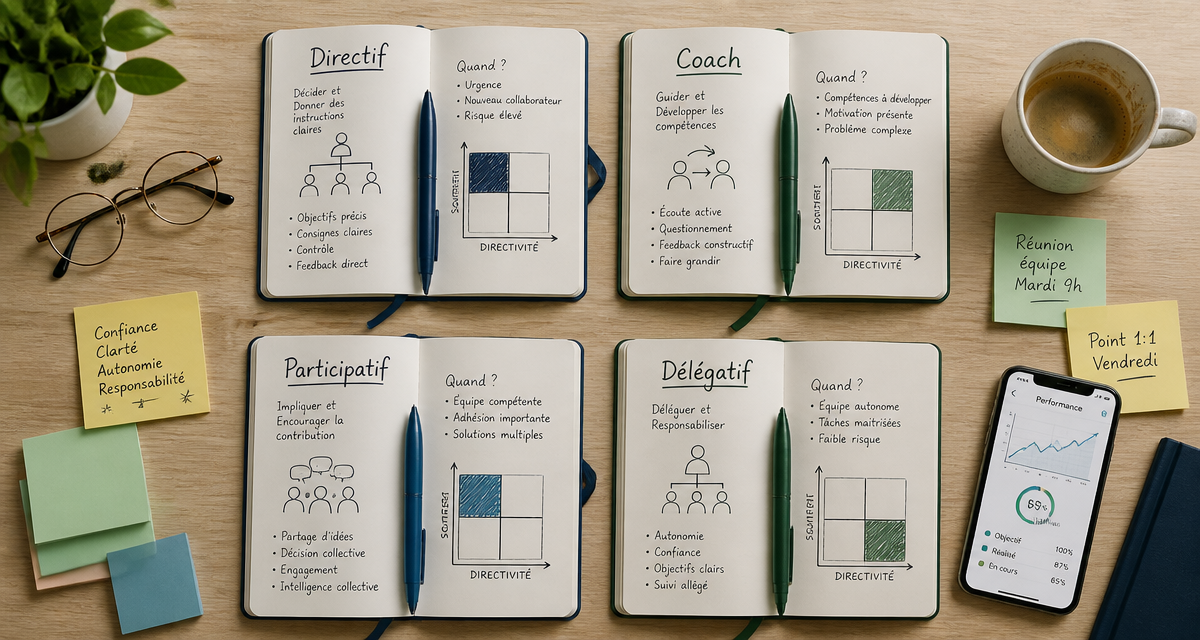 Directif
Décider et
Donner des
instructions
claires
• Objectifs précis
• Consignes claires
• Contrôle
• Feedback direct
Quand ?
• Urgence
• Nouveau collaborateur
• Risque élevé
DIRECTIVITÉ
Coach
Guider et
Développer les
compétences
• Écoute active
• Questionnement
• Feedback constructif
• Faire grandir
Quand ?
• Compétences à développer
• Motivation présente
• Problème complexe
DIRECTIVITÉ
Réunion
équipe
Mardi 9h
Point 1:1
Vendredi
Confiance
Clarté
Autonomie
Responsabilité
Participatif
Impliquer et
Encourager la
contribution
• Partage d'idées
• Décision collective
• Engagement
• Intelligence collective
Quand ?
• Équipe compétente
• Adhésion importante
• Solutions multiples
DIRECTIVITÉ
Délégatif
Déléguer et
Responsabiliser
• Autonomie
• Confiance
• Objectifs clairs
• Suivi allégé
Quand ?
• Équipe autonome
• Tâches maitrisées
• Faible risque
DIRECTIVITÉ
Performance
Objectif 100%
Réalité 87%
En cours 65%